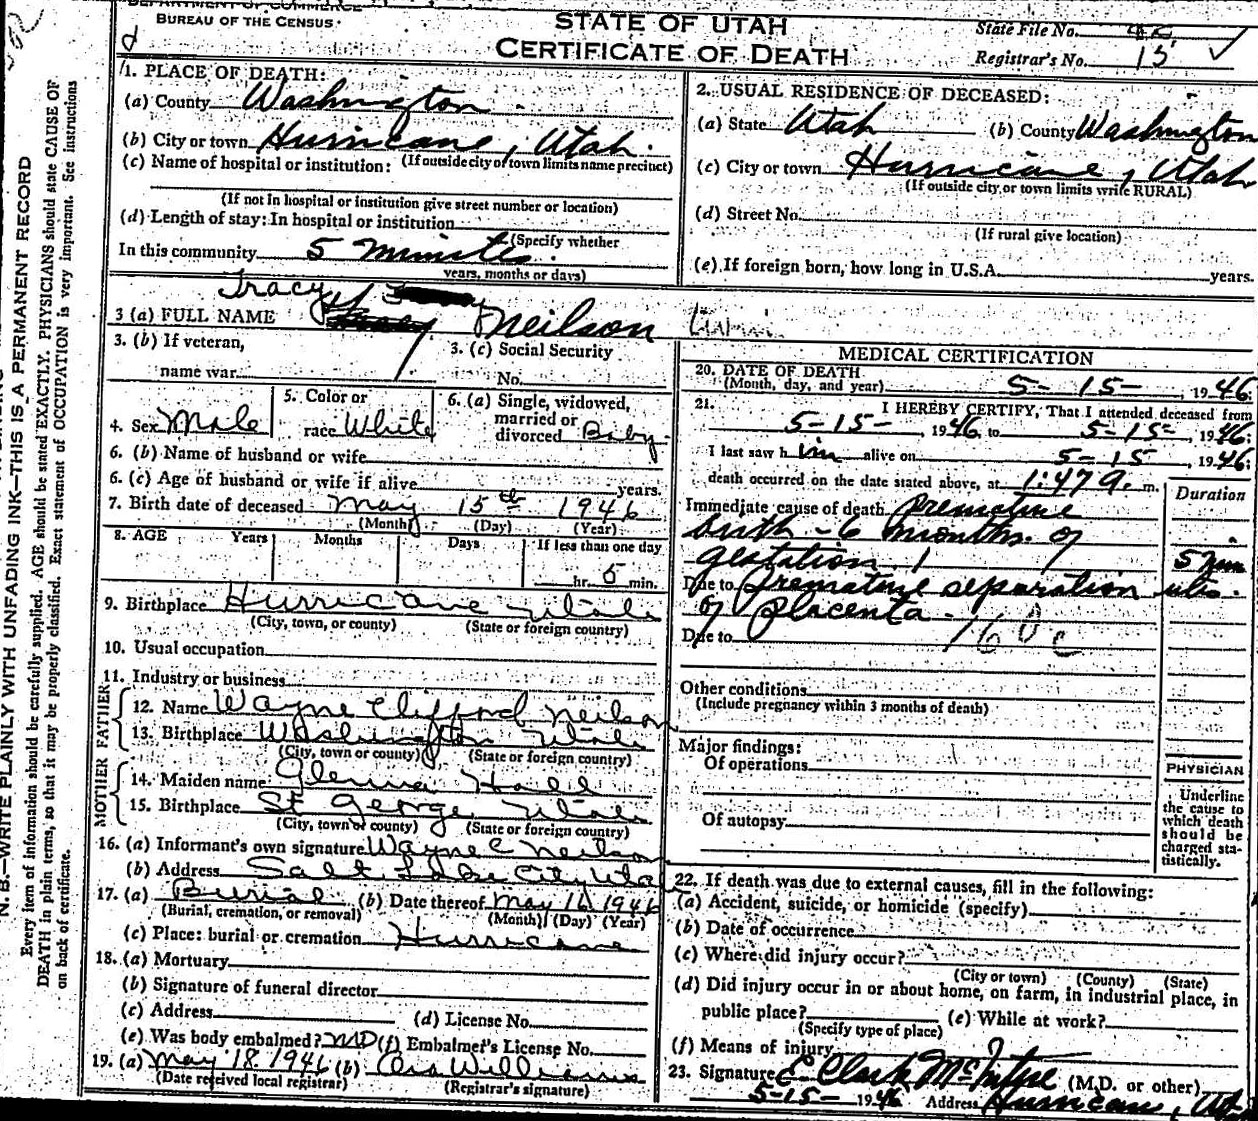 DEPARTMENT OF COMMERCE
BUREAU OF THE CENSUS
STATE OF UTAH
CERTIFICATE OF DEATH
State File No.
Registrar's No. 15
N. B.—WRITE PLAINLY WITH UNFADING INK—THIS IS A PERMANENT RECORD
Every item of information should be carefully supplied. AGE should be stated EXACTLY. PHYSICIANS should state CAUSE OF
DEATH in plain terms, so that it may be properly classified. Exact statement of OCCUPATION is very important. See Instructions
on back of certificate.
1. PLACE OF DEATH:
(a) County Washington
(b) City or town Hurricane, Utah.
(If outside city or town limits name precinct)
(c) Name of hospital or institution:
(If not in hospital or institution give street number or location)
(d) Length of stay: In hospital or institution
(Specify whether
In this community 5 minutes.
years, months or days)
2. USUAL RESIDENCE OF DECEASED:
(a) State Utah (b) County Washington
(c) City or town Hurricane, Utah
(If outside city or town limits write RURAL)
(d) Street No.
(If rural give location)
(e) If foreign born, how long in U.S.A. years.
3 (a) FULL NAME Tracy Neilson
3. (b) If veteran,
name war
3. (c) Social Security
No.
4. Sex Male
5. Color or
race White
6. (a) Single, widowed,
married or
divorced Baby
6. (b) Name of husband or wife
6. (c) Age of husband or wife if alive years.
7. Birth date of deceased May 15th 1946
(Month) (Day) (Year)
8. AGE Years Months Days If less than one day
hr. 5 min.
9. Birthplace Hurricane Utah
(City, town, or county) (State or foreign country)
10. Usual occupation
11. Industry or business
FATHER
12. Name Wayne Clifford Neilson
13. Birthplace Washington Utah
(City, town or county) (State or foreign country)
MOTHER
14. Maiden name Glenna Hall
15. Birthplace St George Utah
(City, town or county) (State or foreign country)
16. (a) Informant's own signature Wayne C Neilson
(b) Address Salt Lake City Utah
17. (a) Burial (b) Date thereof May 16 1946
(Burial, cremation, or removal) (Month) (Day) (Year)
(c) Place: burial or cremation Hurricane
18. (a) Mortuary
(b) Signature of funeral director
(c) Address (d) License No.
(e) Was body embalmed? No (f) Embalmer's License No.
19. (a) May 18 1946 (b) Ora Williams
(Date received local registrar) (Registrar's signature)
MEDICAL CERTIFICATION
20. DATE OF DEATH
(Month, day, and year) 5-15-, 1946.
21. I HEREBY CERTIFY, That I attended deceased from
5-15-, 1946, to 5-15-, 1946.
I last saw him alive on 5-15, 1946.
death occurred on the date stated above, at 1:47 a. m.
Duration
Immediate cause of death Premature
birth - 6 months of
gestation. 5 min
Due to premature separation utes.
of placenta.
Due to 160c
Other conditions
(Include pregnancy within 3 months of death)
Major findings:
Of operations
Of autopsy
PHYSICIAN
Underline
the cause to
which death
should be
charged sta-
tistically.
22. If death was due to external causes, fill in the following:
(a) Accident, suicide, or homicide (specify)
(b) Date of occurrence
(c) Where did injury occur?
(City or town) (County) (State)
(d) Did injury occur in or about home, on farm, in industrial place, in
public place? (e) While at work?
(Specify type of place)
(f) Means of injury
23. Signature E Clark McIntyre (M.D. or other)
5-15- 1946 Address Hurricane, Utah